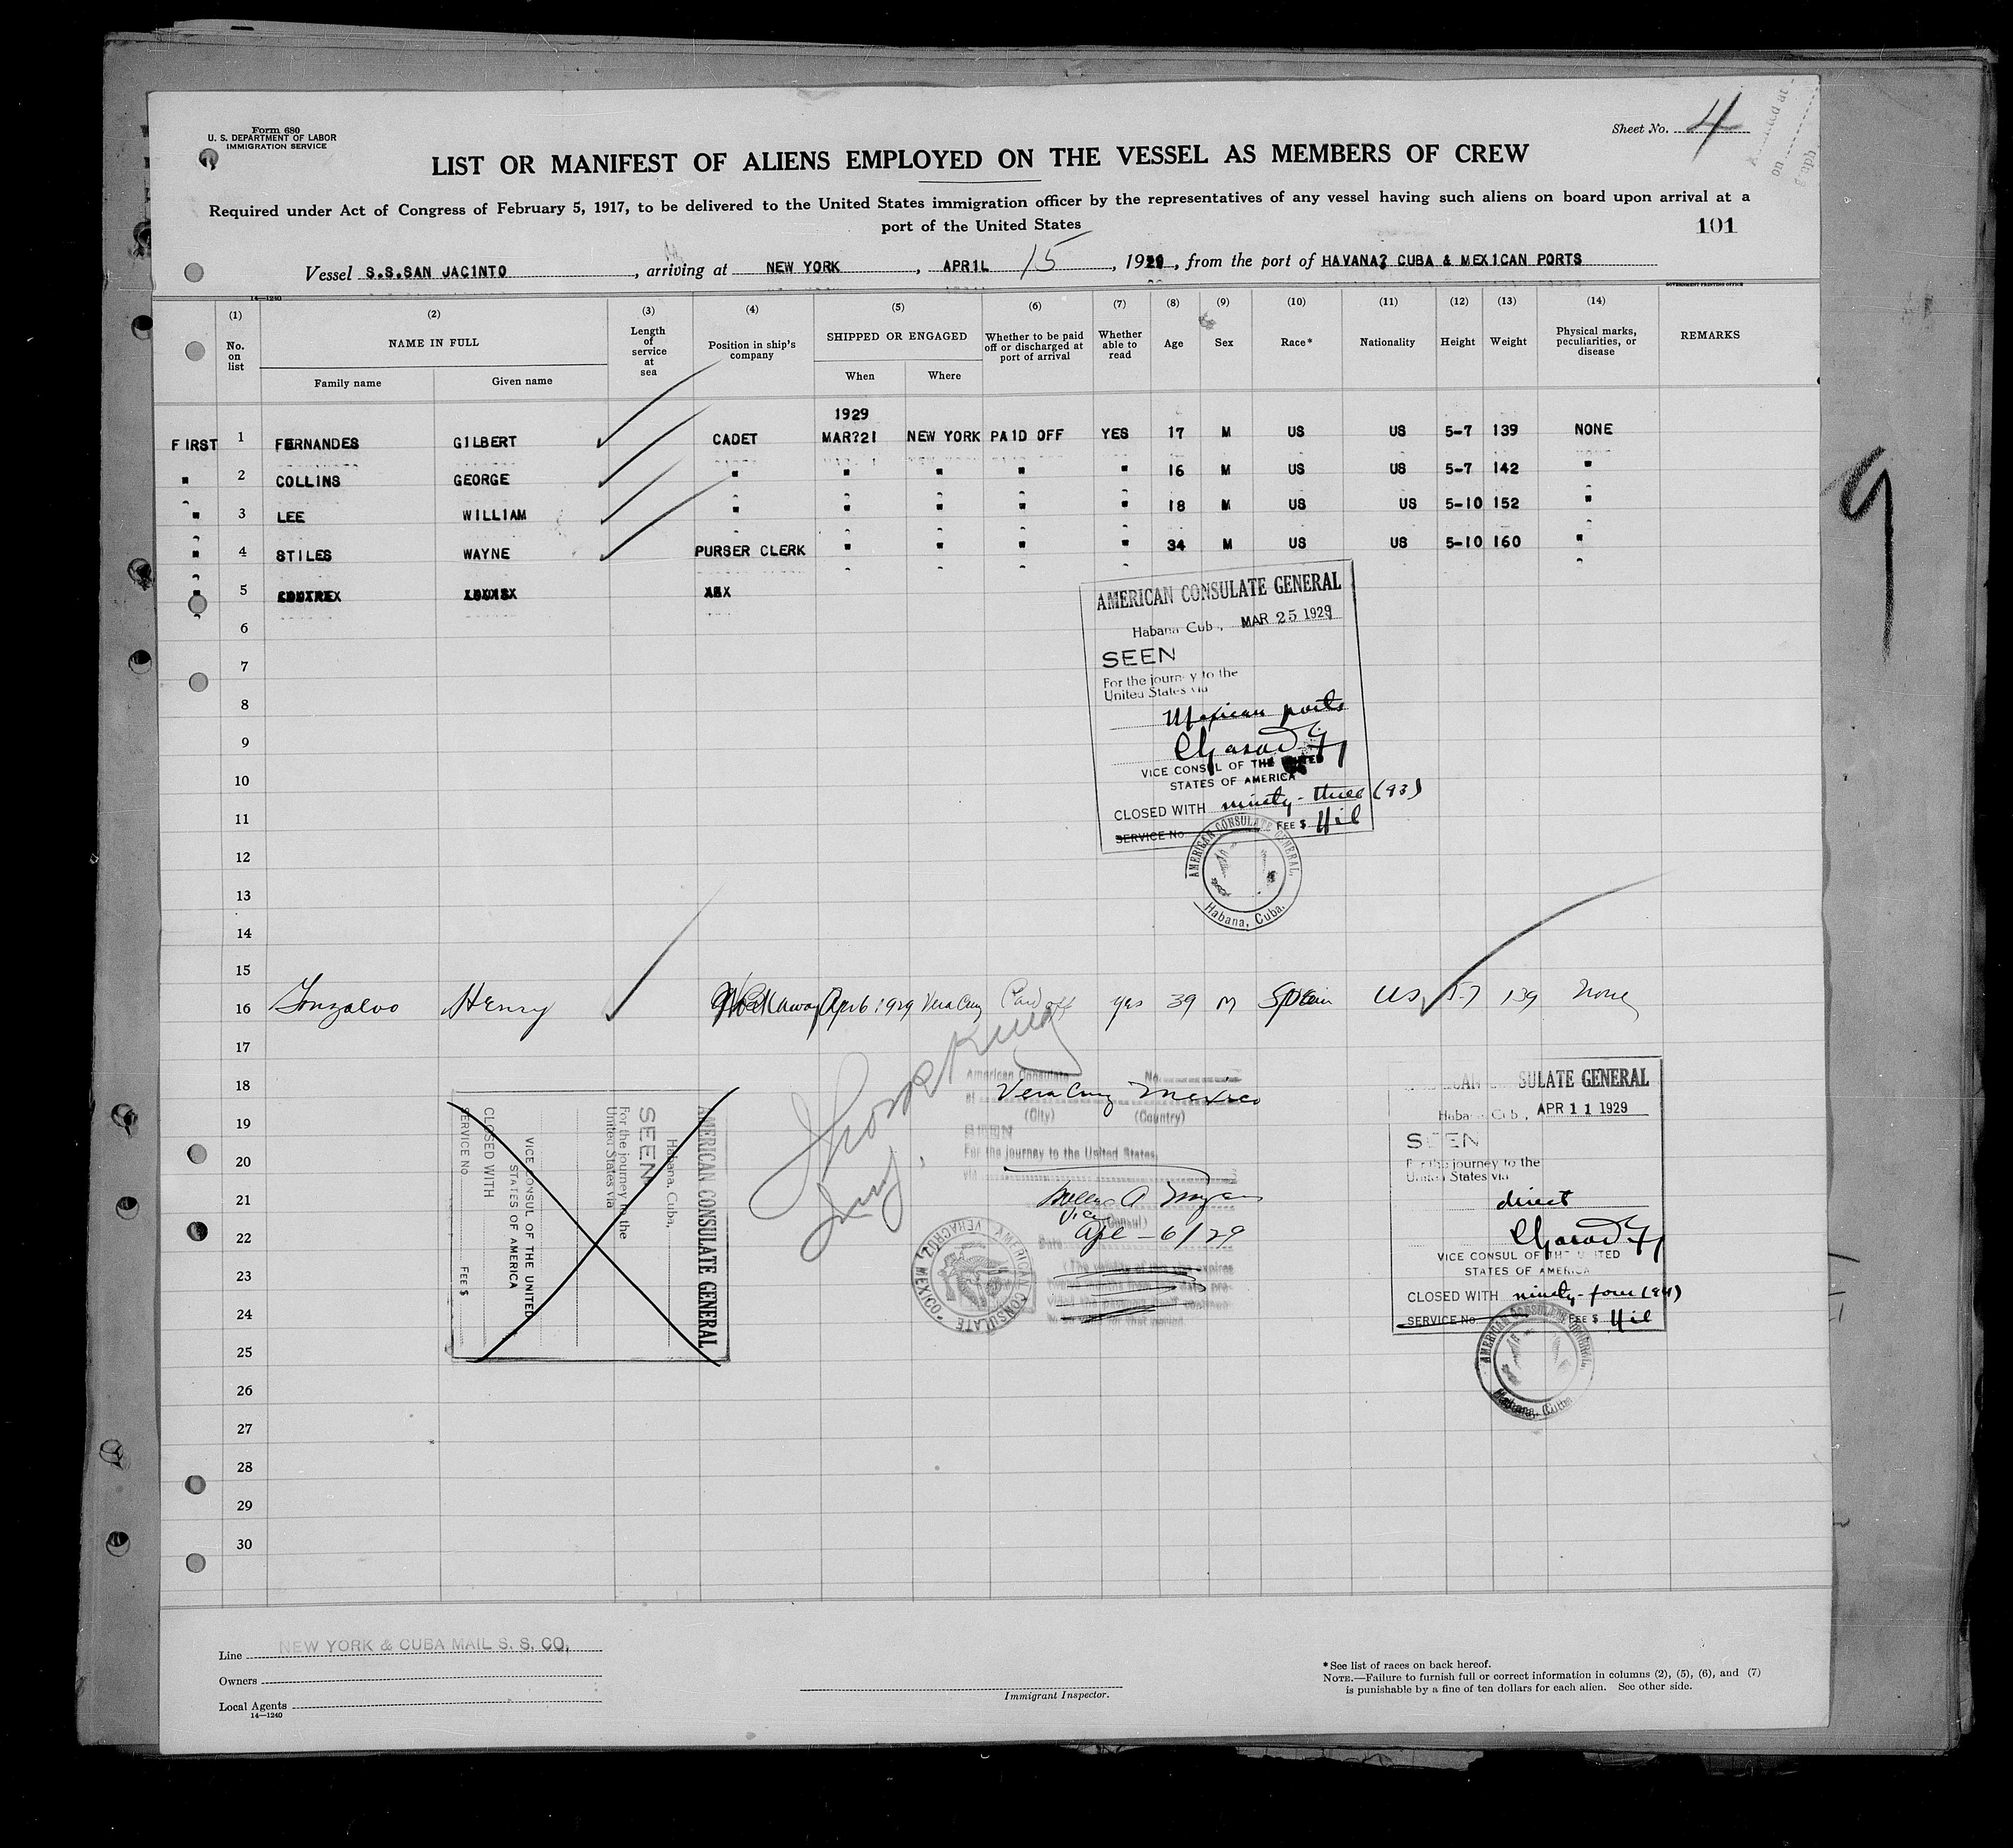 Form 680
U. S. DEPARTMENT OF LABOR
IMMIGRATION SERVICE
Sheet No. 4
LIST OR MANIFEST OF ALIENS EMPLOYED ON THE VESSEL AS MEMBERS OF CREW
Required under Act of Congress of February 5, 1917, to be delivered to the United States immigration officer by the representatives of any vessel having such aliens on board upon arrival at a
port of the United States
101
Vessel S.S.SAN JACINTO, arriving at NEW YORK, APRIL 15, 1929, from the port of HAVANA? CUBA & MEXICAN PORTS
14—1240
GOVERNMENT PRINTING OFFICE
(1) (2) (3) (4) (5) (6) (7) (8) (9) (10) (11) (12) (13) (14)
No. on list NAME IN FULL Length of service at sea Position in ship's company SHIPPED OR ENGAGED Whether to be paid off or discharged at port of arrival Whether able to read Age Sex Race* Nationality Height Weight Physical marks, peculiarities, or disease REMARKS
Family name Given name When Where
1929
FIRST 1 FERNANDES GILBERT CADET MAR?21 NEW YORK PAID OFF YES 17 M US US 5-7 139 NONE
" 2 COLLINS GEORGE " " " " " 16 M US US 5-7 142 "
" 3 LEE WILLIAM " " " " " 18 M US US 5-10 152 "
" 4 STILES WAYNE PURSER CLERK " " " " 34 M US US 5-10 160 "
" 5
6
7
8
9
10
11
12
13
14
15
16 Gonzalvo Henry Apr 6 1929 Vera Cruz Paid off yes 39 M Spain US 5-7 139 None
17
18
19
20
21
22
23
24
25
26
27
28
29
30
AMERICAN CONSULATE GENERAL
Habana Cuba, MAR 25 1929
SEEN
For the journey to the
United States via
Mexican ports
VICE CONSUL OF THE UNITED
STATES OF AMERICA
CLOSED WITH ninety-three (93)
SERVICE No. FEE $ Nil
AMERICAN CONSULATE GENERAL.
Habana, Cuba.
AMERICAN CONSULATE GENERAL
Habana, Cuba,
SEEN
For the journey to the
United States via
VICE CONSUL OF THE UNITED
STATES OF AMERICA
CLOSED WITH
SERVICE No. FEE $
American Consulate No.
at Vera Cruz Mexico
(City) (Country)
SEEN
For the journey to the United States
via
Vice (Consul)
Date Apl - 6/29
AMERICAN CONSULATE
VERACRUZ, MEXICO
CONSULATE GENERAL
Habana Cuba, APR 11 1929
SEEN
For the journey to the
United States via
direct
VICE CONSUL OF THE UNITED
STATES OF AMERICA
CLOSED WITH ninety-four (94)
SERVICE No. FEE $ Nil
AMERICAN CONSULATE GENERAL.
Habana, Cuba.
Line NEW YORK & CUBA MAIL S. S. CO.
Owners
Local Agents
14—1240
Immigrant Inspector.
*See list of races on back hereof.
NOTE.—Failure to furnish full or correct information in columns (2), (5), (6), and (7)
is punishable by a fine of ten dollars for each alien. See other side.